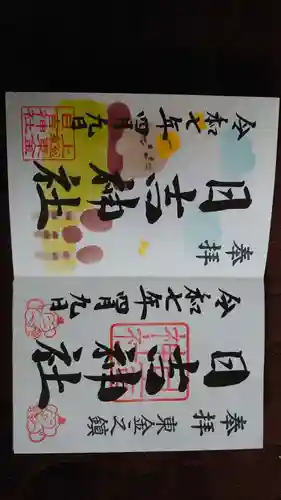 奉拝 東金之鎮
日吉神社
令和七年四月九日
奉拝
日吉神社
令和七年四月九日
上総東金
日吉神社